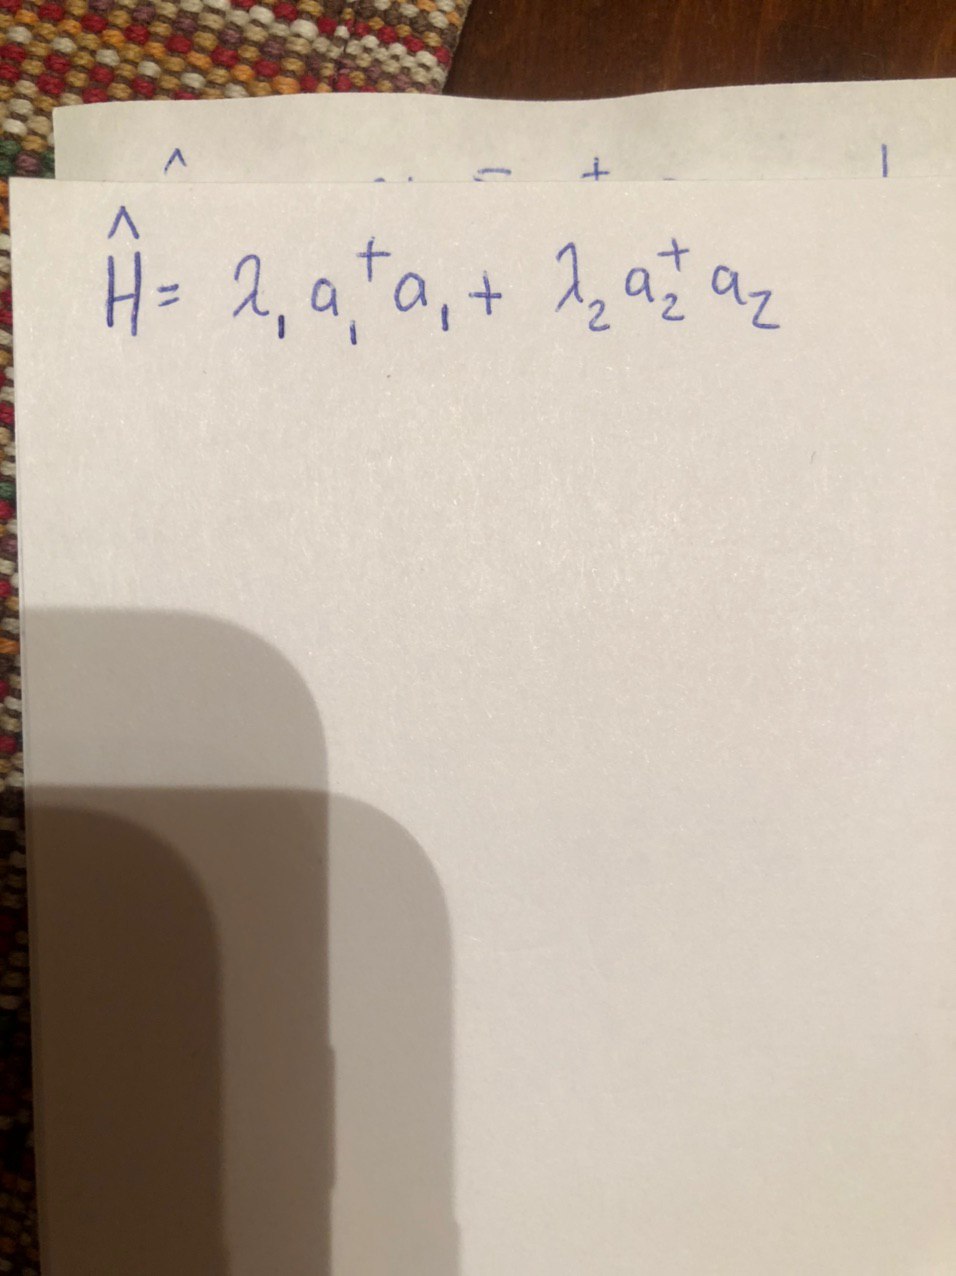 Ĥ = λ₁ a₁⁺ a₁ + λ₂ a₂⁺ a₂